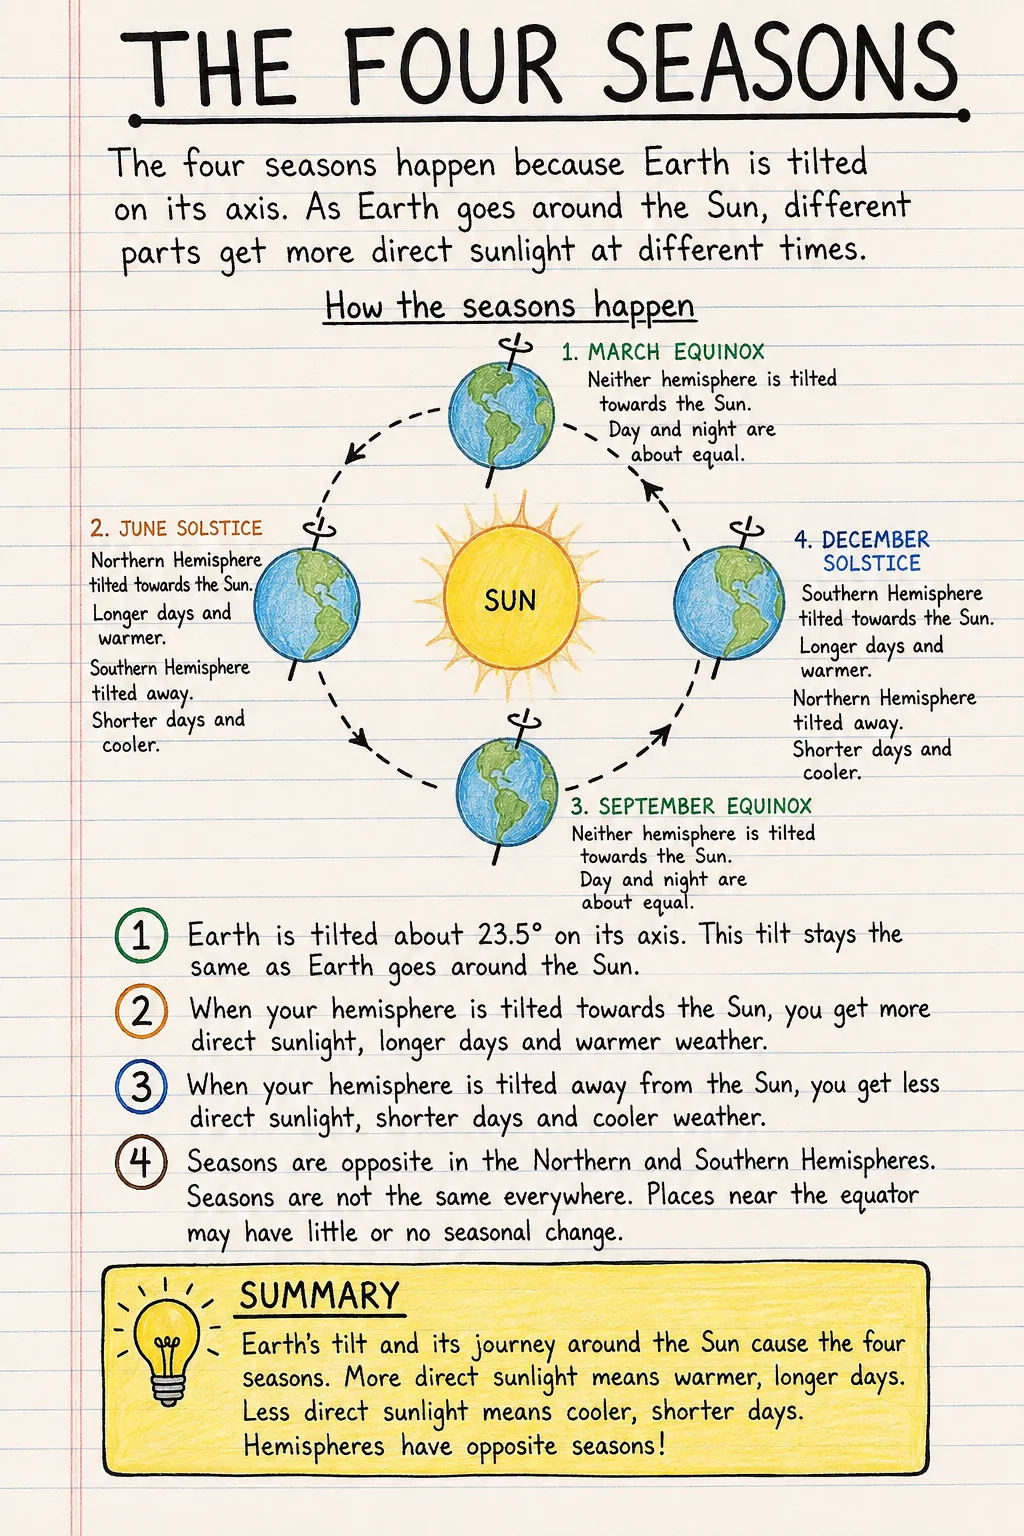 THE FOUR SEASONS
The four seasons happen because Earth is tilted
on its axis. As Earth goes around the Sun, different
parts get more direct sunlight at different times.
How the seasons happen
1. MARCH EQUINOX
Neither hemisphere is tilted
towards the Sun.
Day and night are
about equal.
2. JUNE SOLSTICE
Northern Hemisphere
tilted towards the Sun.
Longer days and
warmer.
Southern Hemisphere
tilted away.
Shorter days and
cooler.
SUN
4. DECEMBER
SOLSTICE
Southern Hemisphere
tilted towards the Sun.
Longer days and
warmer.
Northern Hemisphere
tilted away.
Shorter days and
cooler.
3. SEPTEMBER EQUINOX
Neither hemisphere is tilted
towards the Sun.
Day and night are
about equal.
1 Earth is tilted about 23.5° on its axis. This tilt stays the
same as Earth goes around the Sun.
2 When your hemisphere is tilted towards the Sun, you get more
direct sunlight, longer days and warmer weather.
3 When your hemisphere is tilted away from the Sun, you get less
direct sunlight, shorter days and cooler weather.
4 Seasons are opposite in the Northern and Southern Hemispheres.
Seasons are not the same everywhere. Places near the equator
may have little or no seasonal change.
SUMMARY
Earth's tilt and its journey around the Sun cause the four
seasons. More direct sunlight means warmer, longer days.
Less direct sunlight means cooler, shorter days.
Hemispheres have opposite seasons!